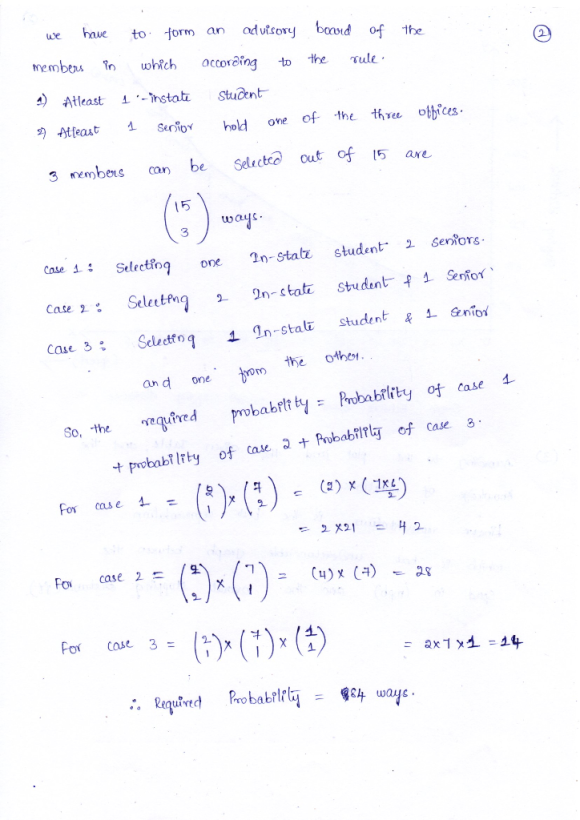 2
we have to form an advisory board of the
members in which according to the rule.
1) Atleast 1 - instate student
2) Atleast 1 senior hold one of the three offices.
3 members can be selected out of 15 are
(15 3) ways.
Case 1 : Selecting one In-state student 2 seniors.
Case 2 : Selecting 2 In-state student & 1 Senior
Case 3 : Selecting 1 In-state student & 1 Senior
and one from the other..
So, the required probability = Probability of case 1
+ probability of case 2 + Probability of case 3.
For case 1 = (2 1) × (7 2) = (2) × (7×6/2)
= 2 × 21 = 42
For case 2 = (2 2) × (7 1) = (4) × (7) = 28
For case 3 = (2 1) × (7 1) × (1 1) = 2×7×1 = 14
∴ Required Probability = 84 ways.